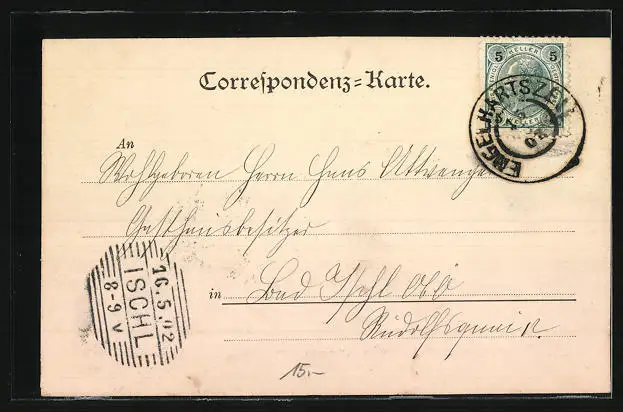 Correspondenz=Karte.
5 HELLER 5
ENGELHARTSZELL
An
Wohlgeboren Herrn Hans Attwenger
Gasthausbesitzer
in Bad Ischl OÖ
Rudolfsquai
16.5.02
ISCHL
8-9 V
15.-